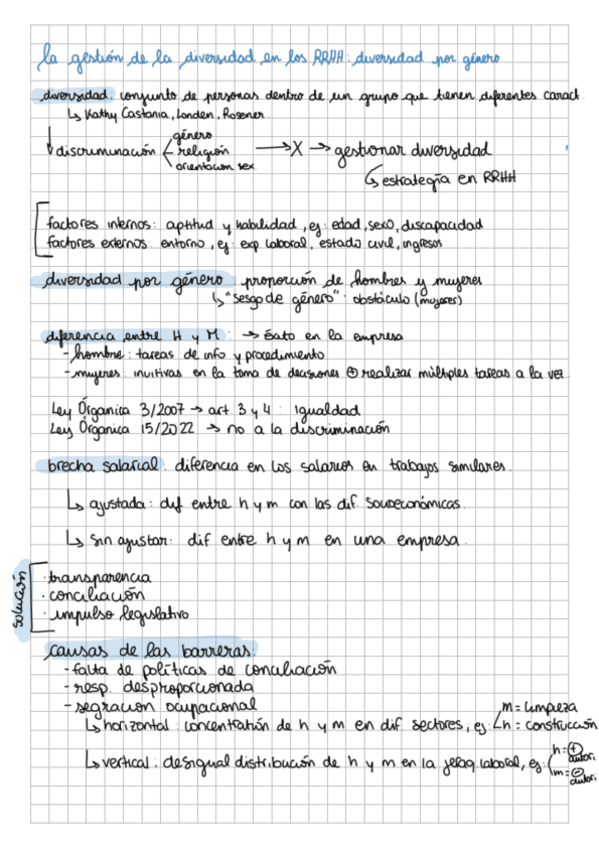 la gestión de la diversidad en los RRHH: diversidad por género
diversidad: conjunto de personas dentro de un grupo que tienen diferentes caract.
↳ Kathy Castania, Londen, Rosener
↓ discruminación < género
religión
orientacion sex
→ X → gestionar diversidad
↳ estrategia en RRHH
factores internos: aptitud y habilidad, ej: edad, sexo, discapacidad
factores externos: entorno, ej: exp laboral, estado civil, ingresos
diversidad por género: proporción de hombres y mujeres
↳ "sesgo de género": obstáculo (mujeres)
diferencia entre H y M: → éxito en la empresa
- hombre: tareas de info y procedimiento
- mujeres: inuitivas en la toma de decisiones ⊕ realizar múltiples tareas a la vez
Ley Órganica 3/2007 → art 3 y 4: igualdad
Ley Órganica 15/2022 → no a la discriminación
brecha salarial: diferencia en los salarios en trabajos similares.
↳ ajustada: dif entre h y m con las dif. socioeconómicas.
↳ sin ajustar: dif entre h y m en una empresa.
solución
· transparencia
· conciliación
· impulso legislativo
causas de las barreras:
- falta de políticas de conciliación
- resp. desproporcionada
- segración ocupacional
↳ horizontal: concentratión de h y m en dif sectores, ej: < m = limpieza
h = construcción
↳ vertical: desigual distribución de h y m en la jeraq laboral, ej: < h: ⊕ autori.
m = ⊖ autori.